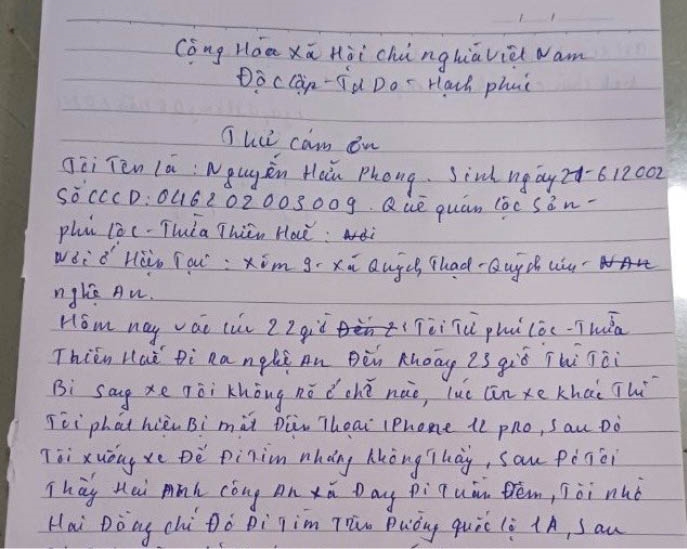 Cộng Hòa Xã Hội chủ nghĩa Việt Nam
Độc Lập - Tự Do - Hạnh phúc
Thư cảm ơn
Tôi Tên là : Nguyễn Hữu Phong. Sinh ngày 21-6 2002
Số CCCD: 046202003009. Quê quán Lộc Sơn -
phú Lộc - Thừa Thiên Huế :
Nơi ở Hiện Tại : Xóm 9 - Xã Quỳnh Thạch - Quỳnh Lưu -
nghệ An.
Hôm nay vào lúc 22giờ Tôi Từ phú Lộc - Thừa
Thiên Huế Đi Ra nghệ An Đến Khoảng 23 giờ Thì Tôi
Bị sang xe Tôi không rõ ở chỗ nào, lúc lên xe khác Thì
Tôi phát hiện Bị mất Điện Thoại IPhone 12 pRo, Sau Đó
Tôi xuống xe Để Đi Tìm nhưng không Thấy, Sau Đó Tôi
Thấy Hai Anh công An xã Đang Đi Tuần Đêm, Tôi nhờ
Hai Đồng chí Đó Đi Tìm Trên Đường quốc lộ 1A, Sau